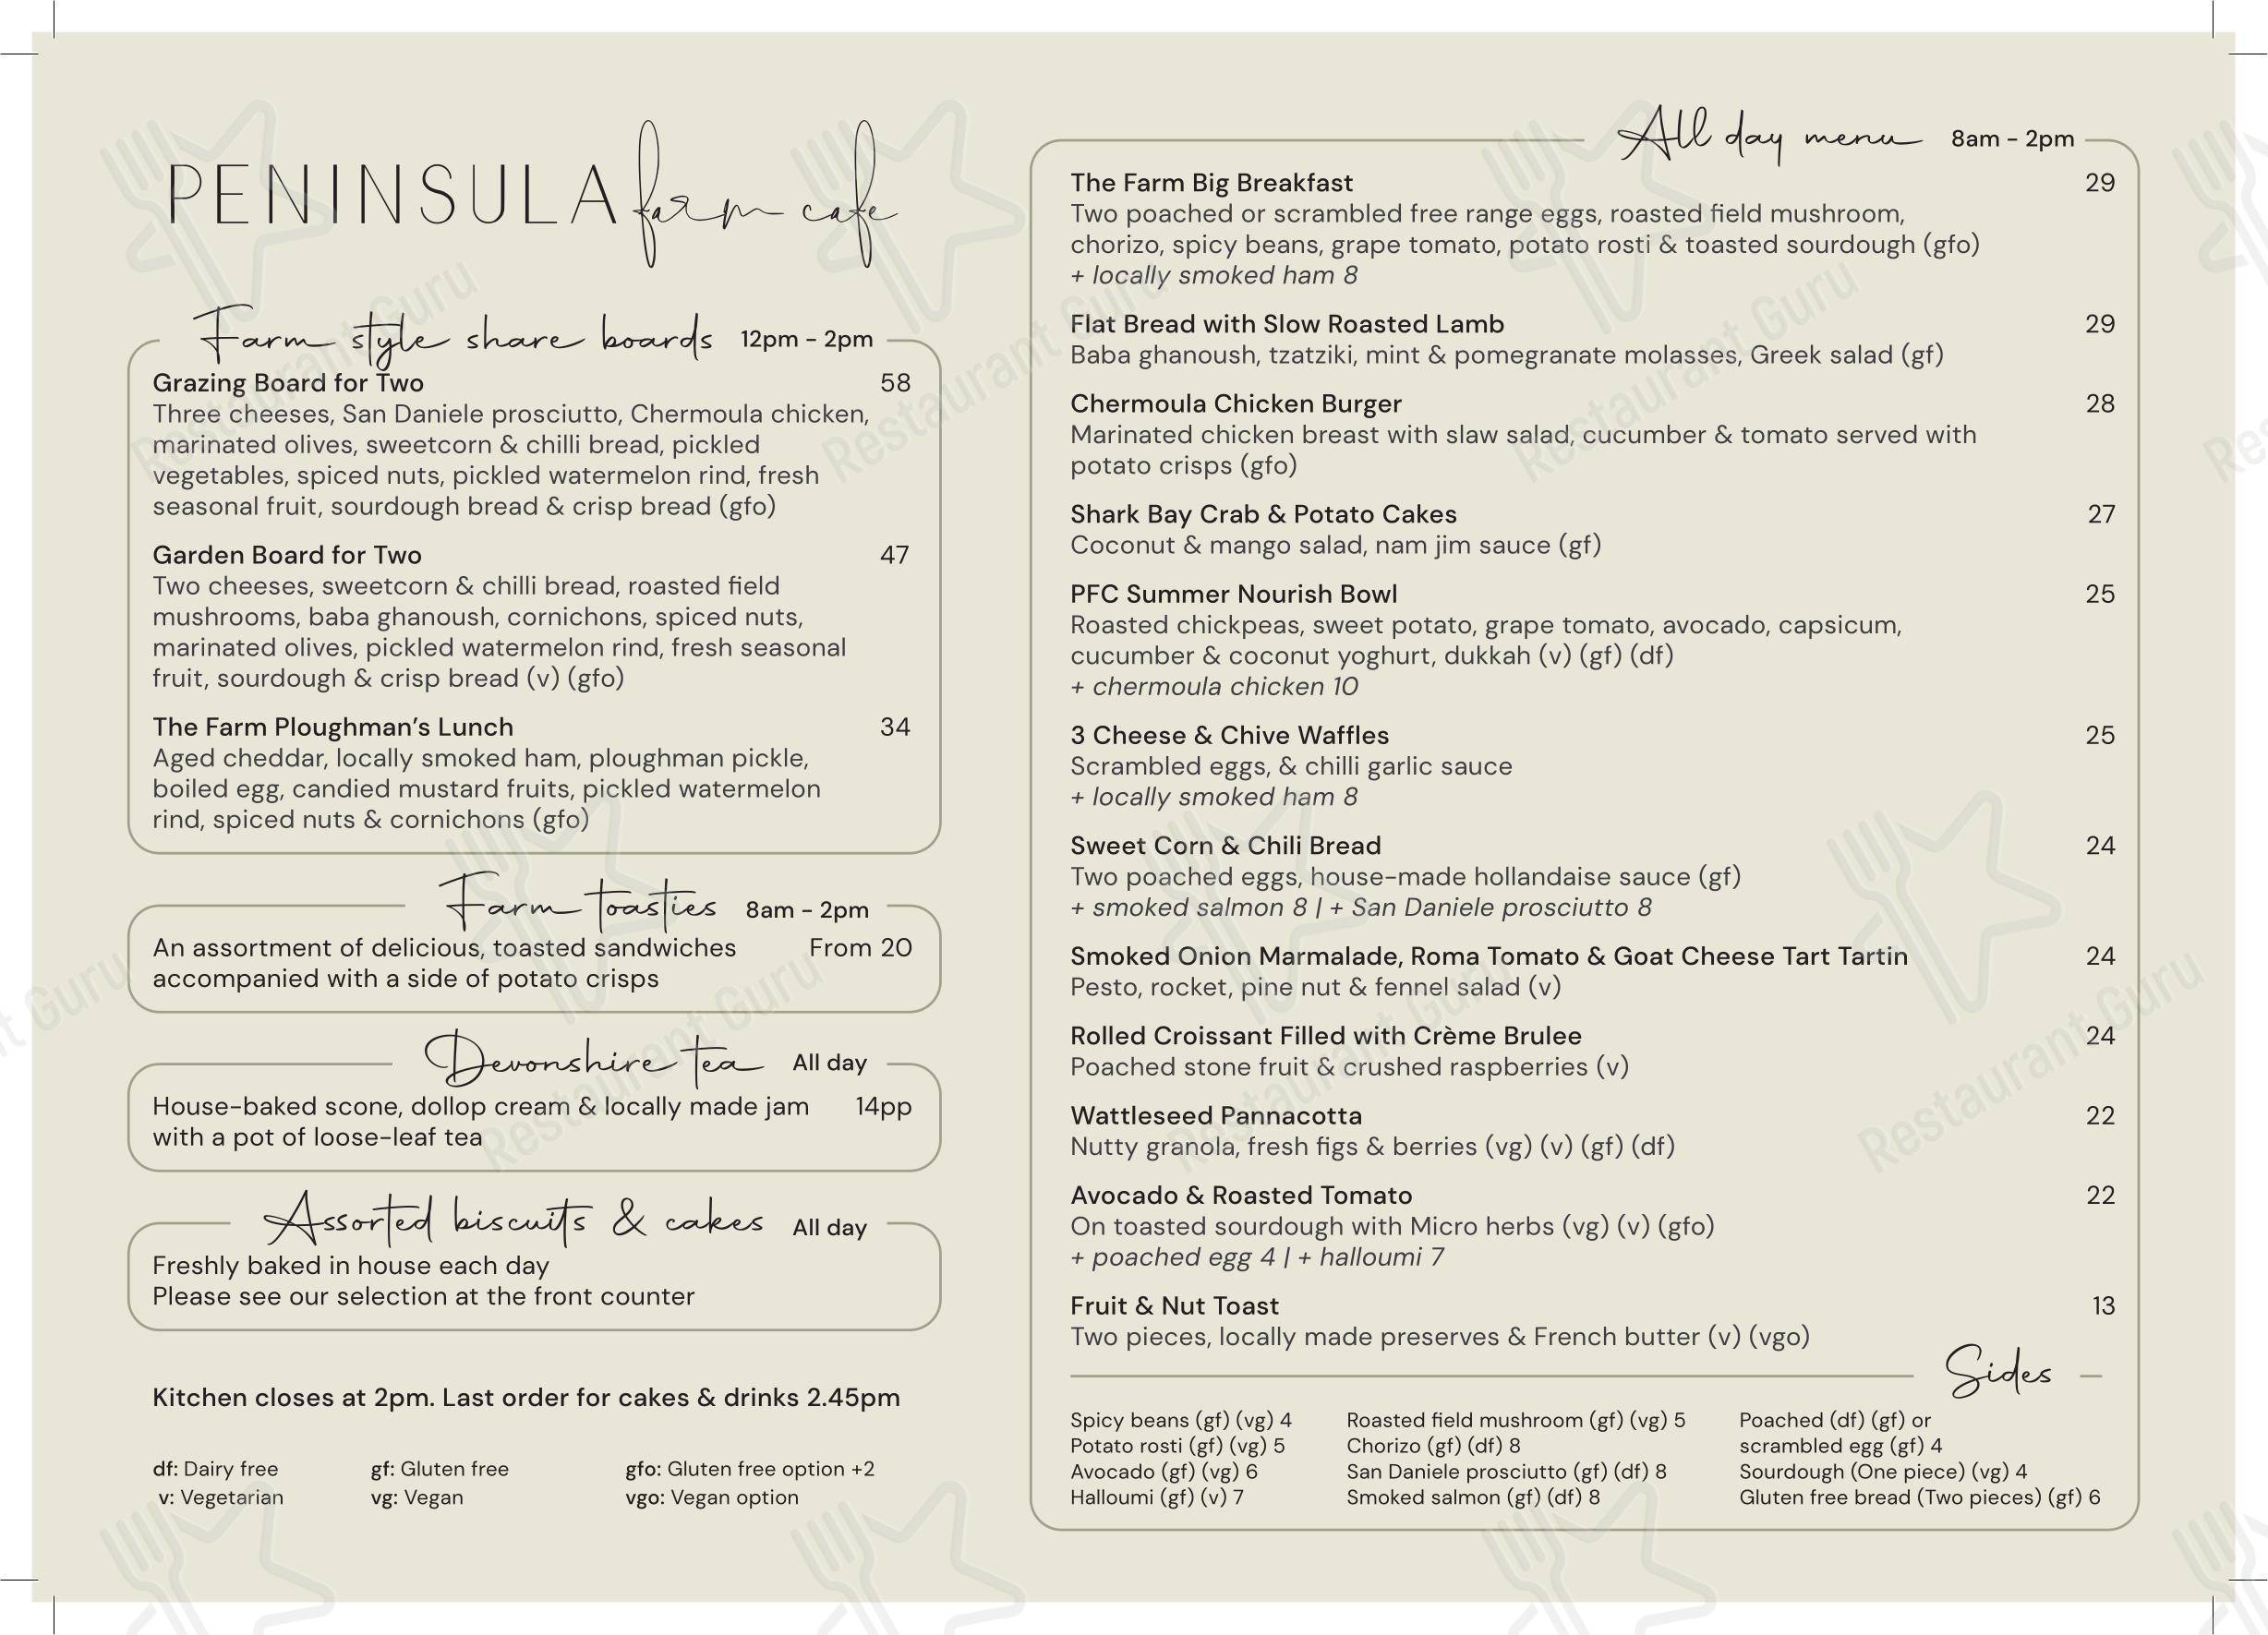 PENINSULA farm cafe
Farm style share boards 12pm - 2pm
Grazing Board for Two 58
Three cheeses, San Daniele prosciutto, Chermoula chicken,
marinated olives, sweetcorn & chilli bread, pickled
vegetables, spiced nuts, pickled watermelon rind, fresh
seasonal fruit, sourdough bread & crisp bread (gfo)
Garden Board for Two 47
Two cheeses, sweetcorn & chilli bread, roasted field
mushrooms, baba ghanoush, cornichons, spiced nuts,
marinated olives, pickled watermelon rind, fresh seasonal
fruit, sourdough & crisp bread (v) (gfo)
The Farm Ploughman’s Lunch 34
Aged cheddar, locally smoked ham, ploughman pickle,
boiled egg, candied mustard fruits, pickled watermelon
rind, spiced nuts & cornichons (gfo)
Farm toasties 8am - 2pm
An assortment of delicious, toasted sandwiches From 20
accompanied with a side of potato crisps
Devonshire tea All day
House-baked scone, dollop cream & locally made jam 14pp
with a pot of loose-leaf tea
Assorted biscuits & cakes All day
Freshly baked in house each day
Please see our selection at the front counter
Kitchen closes at 2pm. Last order for cakes & drinks 2.45pm
df: Dairy free gf: Gluten free gfo: Gluten free option +2
v: Vegetarian vg: Vegan vgo: Vegan option
All day menu 8am - 2pm
The Farm Big Breakfast 29
Two poached or scrambled free range eggs, roasted field mushroom,
chorizo, spicy beans, grape tomato, potato rosti & toasted sourdough (gfo)
+ locally smoked ham 8
Flat Bread with Slow Roasted Lamb 29
Baba ghanoush, tzatziki, mint & pomegranate molasses, Greek salad (gf)
Chermoula Chicken Burger 28
Marinated chicken breast with slaw salad, cucumber & tomato served with
potato crisps (gfo)
Shark Bay Crab & Potato Cakes 27
Coconut & mango salad, nam jim sauce (gf)
PFC Summer Nourish Bowl 25
Roasted chickpeas, sweet potato, grape tomato, avocado, capsicum,
cucumber & coconut yoghurt, dukkah (v) (gf) (df)
+ chermoula chicken 10
3 Cheese & Chive Waffles 25
Scrambled eggs, & chilli garlic sauce
+ locally smoked ham 8
Sweet Corn & Chili Bread 24
Two poached eggs, house-made hollandaise sauce (gf)
+ smoked salmon 8 | + San Daniele prosciutto 8
Smoked Onion Marmalade, Roma Tomato & Goat Cheese Tart Tartin 24
Pesto, rocket, pine nut & fennel salad (v)
Rolled Croissant Filled with Crème Brulee 24
Poached stone fruit & crushed raspberries (v)
Wattleseed Pannacotta 22
Nutty granola, fresh figs & berries (vg) (v) (gf) (df)
Avocado & Roasted Tomato 22
On toasted sourdough with Micro herbs (vg) (v) (gfo)
+ poached egg 4 | + halloumi 7
Fruit & Nut Toast 13
Two pieces, locally made preserves & French butter (v) (vgo)
Sides
Spicy beans (gf) (vg) 4
Potato rosti (gf) (vg) 5
Avocado (gf) (vg) 6
Halloumi (gf) (v) 7
Roasted field mushroom (gf) (vg) 5
Chorizo (gf) (df) 8
San Daniele prosciutto (gf) (df) 8
Smoked salmon (gf) (df) 8
Poached (df) (gf) or
scrambled egg (gf) 4
Sourdough (One piece) (vg) 4
Gluten free bread (Two pieces) (gf) 6
Restaurant Guru
Restaurant Guru
Restaurant Guru
Restaurant Guru
Restaurant Guru
Restaurant Guru